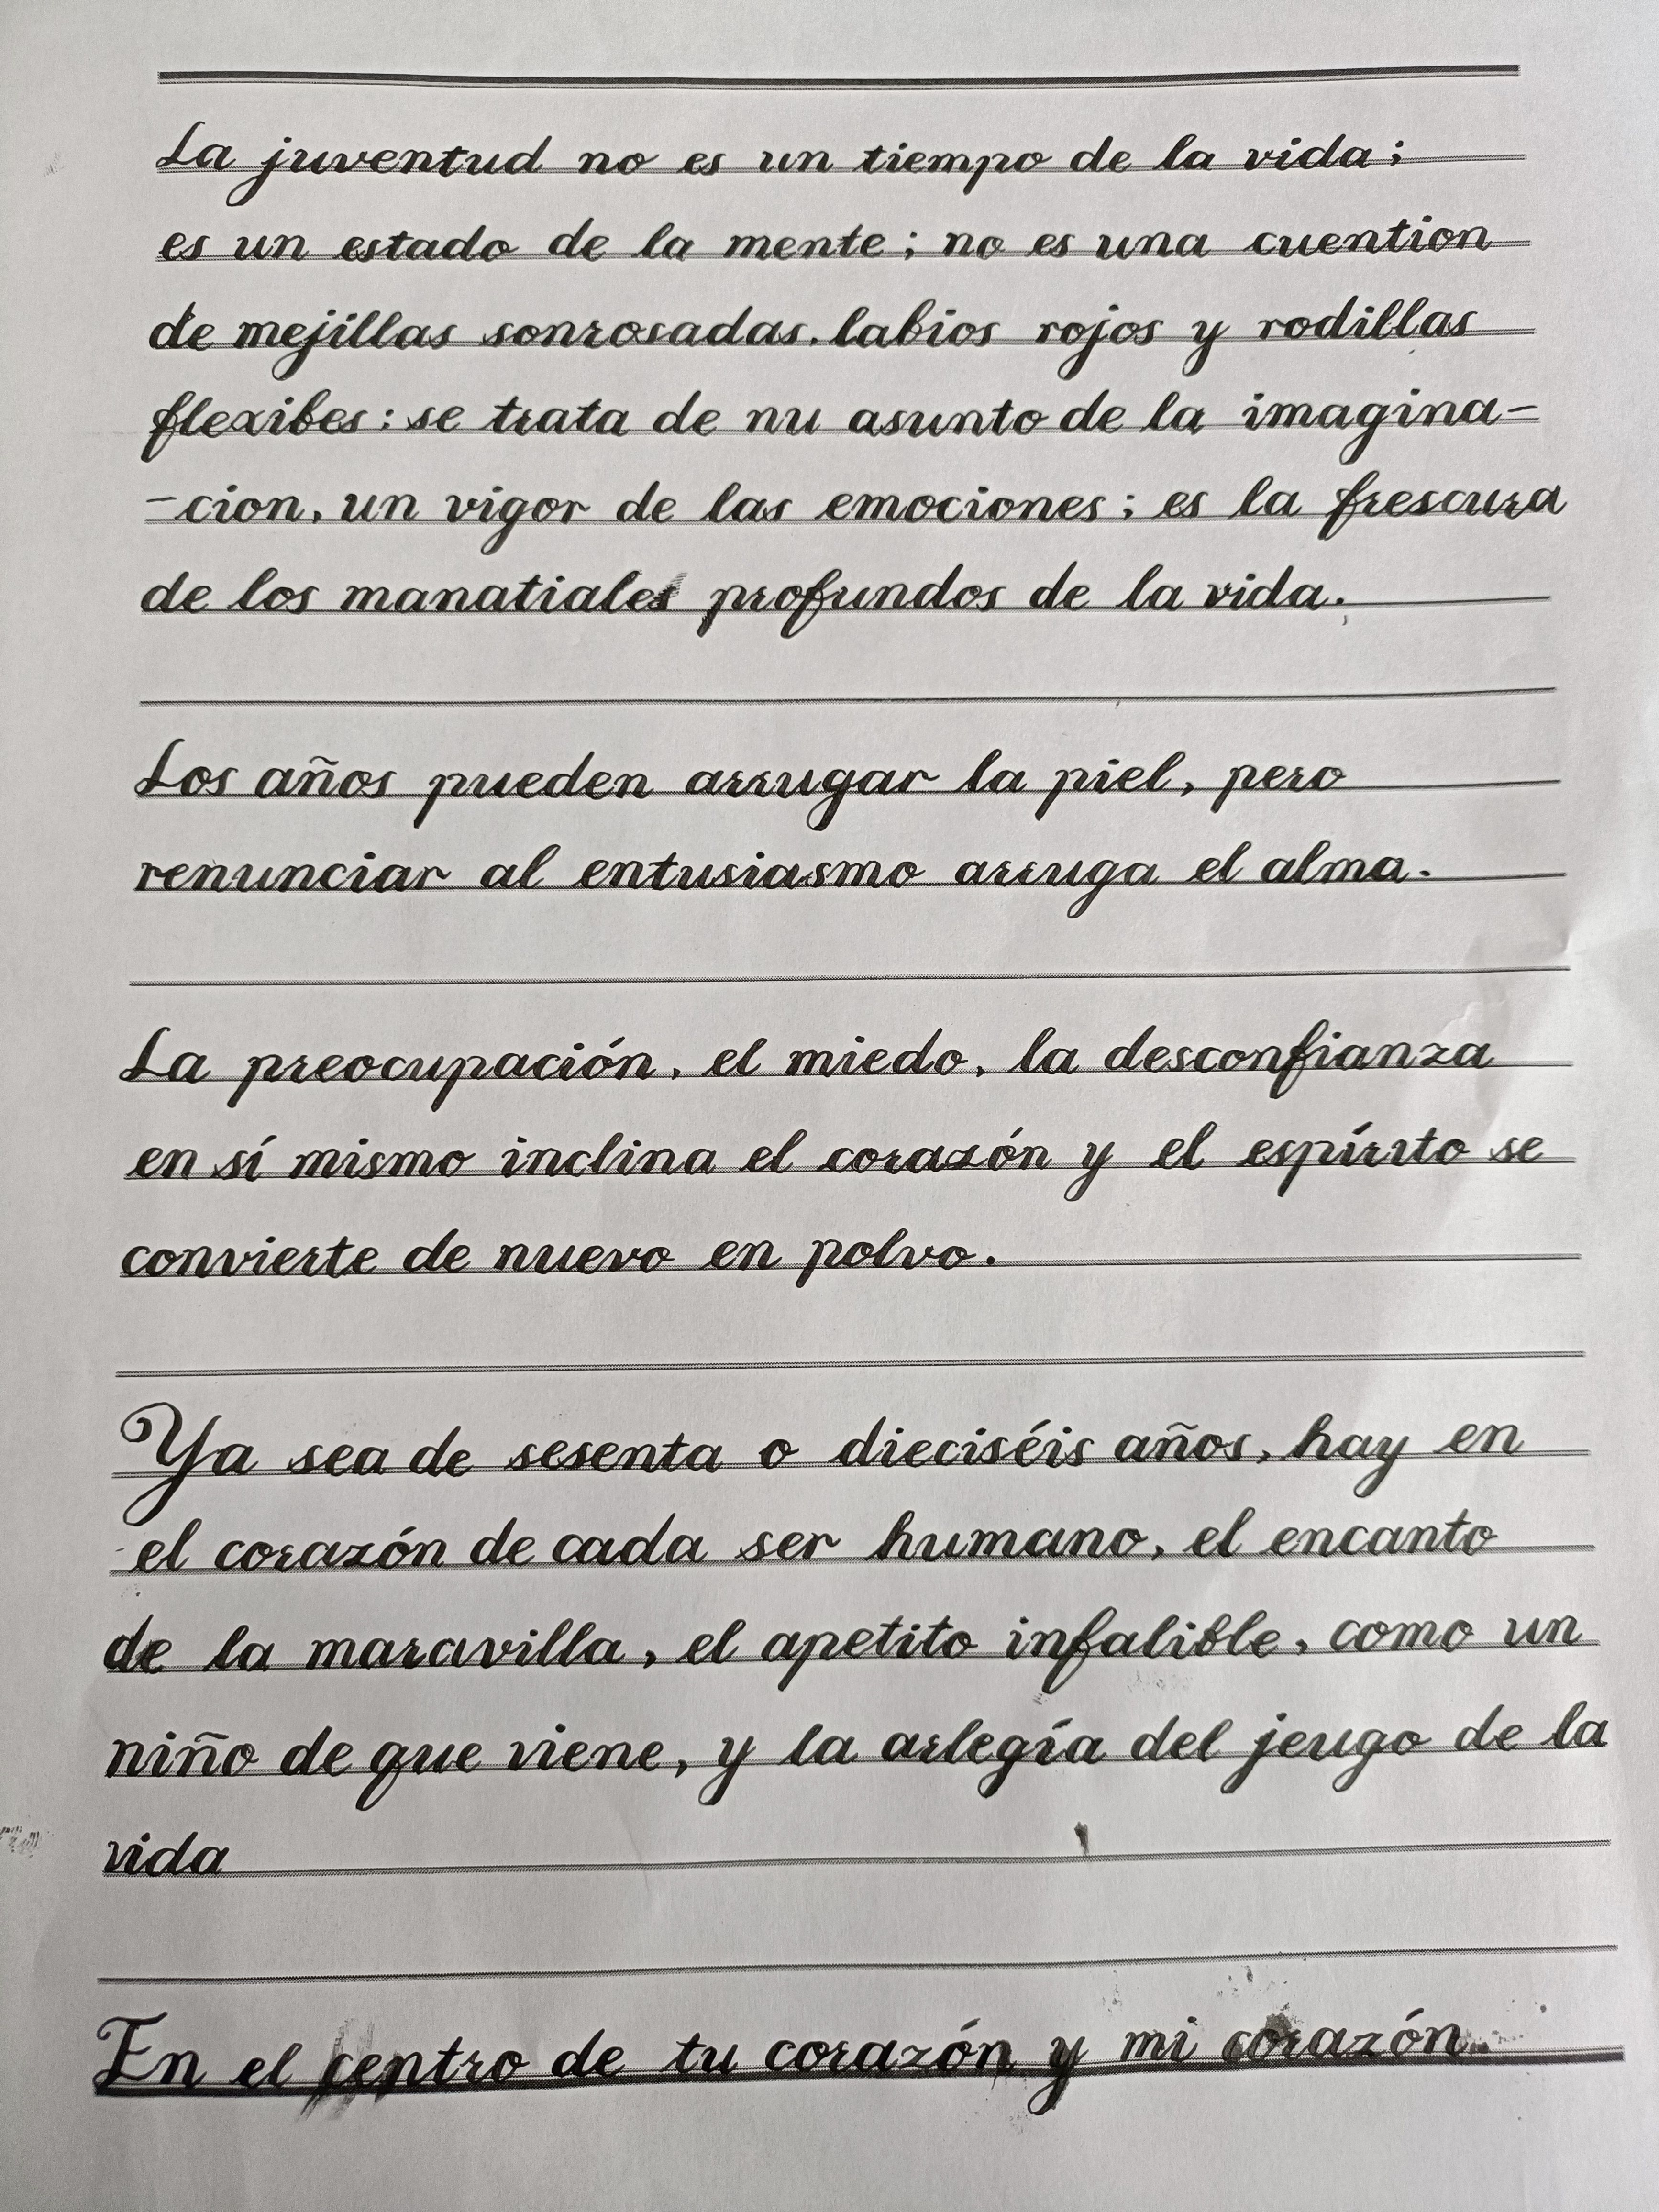 La juventud no es un tiempo de la vida;
es un estado de la mente; no es una cuention
de mejillas sonrosadas. labios rojos y rodillas
flexibes: se trata de nu asunto de la imagina-
-cion, un vigor de las emociones; es la frescura
de los manatiales profundos de la vida.
Los años pueden arrugar la piel, pero
renunciar al entusiasmo arruga el alma.
La preocupación, el miedo, la desconfianza
en sí mismo inclina el corazón y el espírito se
convierte de nuevo en polvo.
Ya sea de sesenta o dieciséis años, hay en
el corazón de cada ser humano, el encanto
de la maravilla, el apetito infalible, como un
niño de que viene, y la arlegía del jeugo de la
vida
En el centro de tu corazón y mi corazón